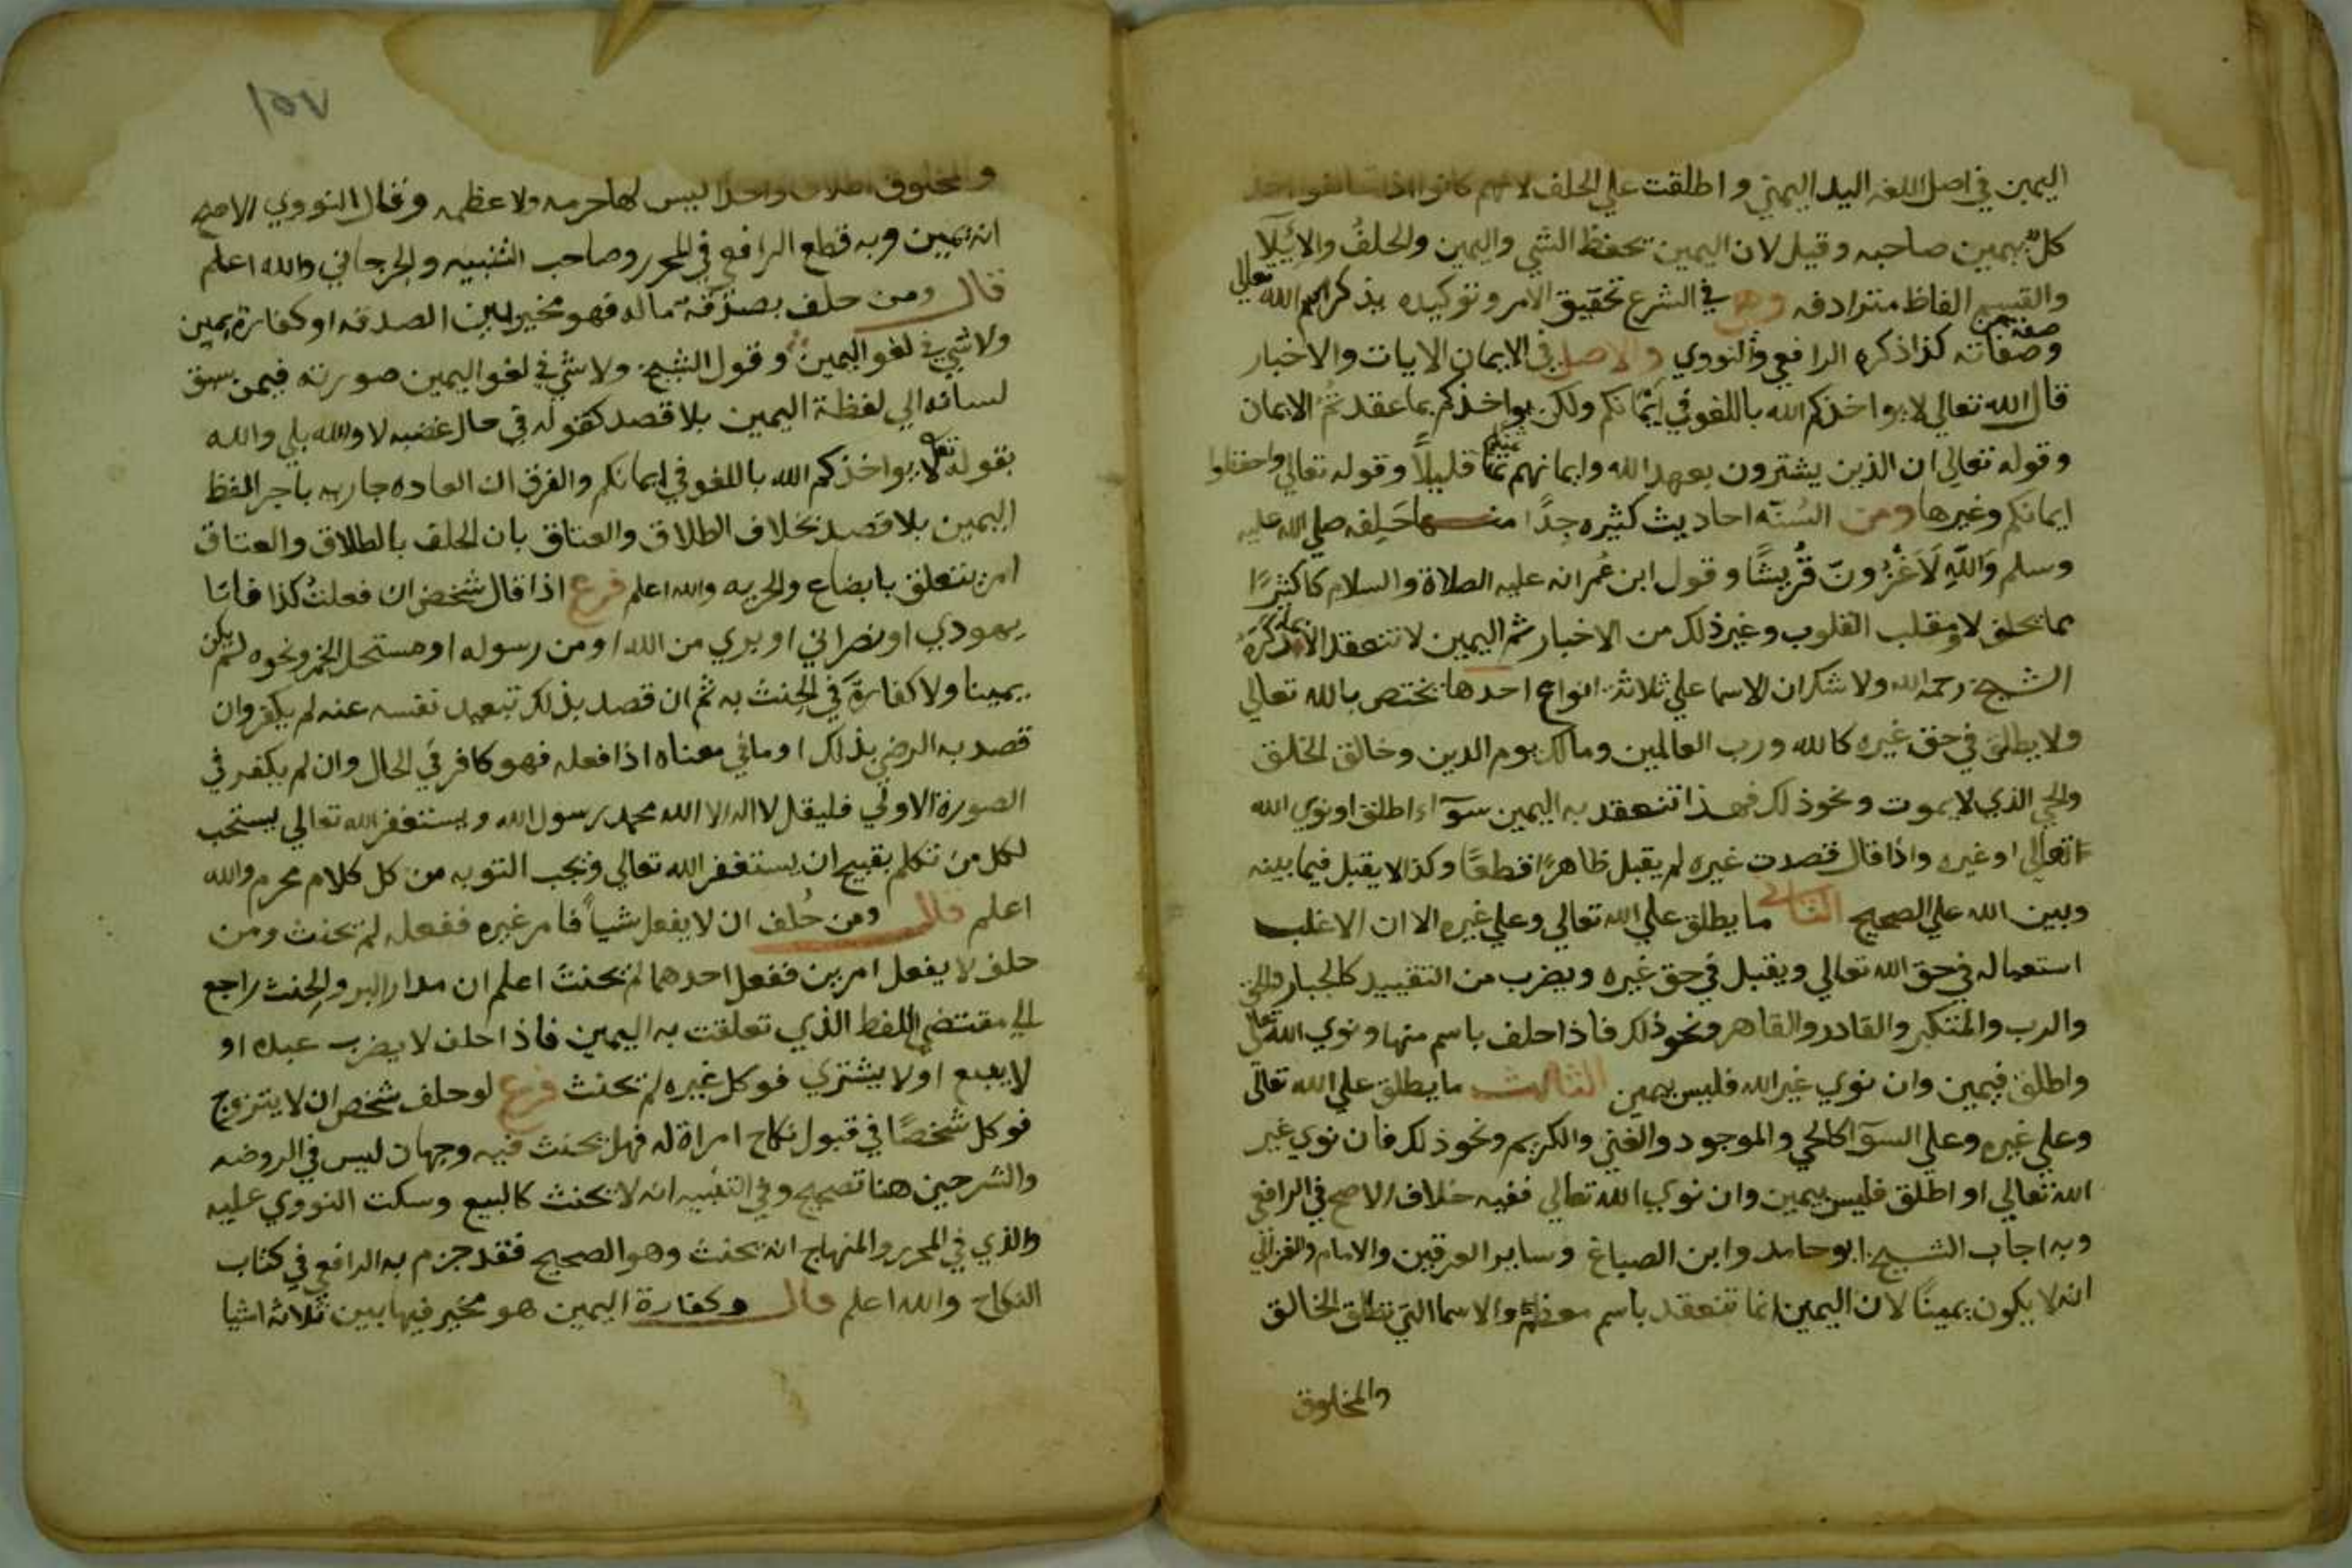 اليمين في اصل اللغه اليد اليمني واطلقت علي الحلف لانهم كانوا اذا تحالفوا اخذ
كل بيمين صاحبه وقيل لان اليمين تحفظ الشي واليمين والحلف والايلا
والقسم الفاظ مترادفه وهي في الشرع تحقيق الامر وتوكيده بذكر اسم الله تعالي
وصفاته كذا ذكره الرافعي والنووي والاصل في الايمان الايات والاخبار
قال الله تعالي لا يواخذكم الله باللغو في ايمانكم ولكن يواخذكم بما عقدتم الايمان
وقوله تعالي ان الذين يشترون بعهد الله وايمانهم ثمنا قليلاً وقوله تعالي واحفظوا
ايمانكم وغيرها ومن السُنّه احاديث كثيره جدًا منها حَلِفه صلي الله عليه
وسلم وَاللَّهِ لَاَغْزُونّ قُرَيشًا وقول ابن عُمر انه عليه الصلاة والسلام كا كثيرًا
مما يحلف لا ومقلب القلوب وغير ذلك من الاخبار ثم اليمين لا تنعقد الا بما ذكره
الشيخ رحمه الله ولا شك ان الاسما علي ثلاثة انواع احدها يختص بالله تعالي
ولا يطلق في حق غيره كالله ورب العالمين ومالك يوم الدين وخالق الخلق
والحي الذي لا يموت ونحو ذلك فهذا تنعقد به اليمين سوآء اطلق او نوي الله
تعالي او غيره واذا قال قصدت غيره لم يقبل ظاهرًا قطعًا وكذا لا يقبل فيما بينه
وبين الله علي الصحيح الثاني ما يطلق علي الله تعالي وعلي غيره الا ان الاغلب
استعماله في حق الله تعالي ويقبل في حق غيره وبضرب من التقييد كالجبار والحق
والرب والمتكبر والقادر والقاهر ونحو ذلك فاذا حلف باسم منها ونوي الله تعالي
واطلق فيمين وان نوي غير الله فليس بيمين الثالث ما يطلق علي الله تعالى
وعلي غيره وعلي السوآ كالحي والموجود والغني والكريم ونحو ذلك فان نوي غير
الله تعالي او اطلق فليس بيمين وان نوي الله تعالي ففيه خلاف الاصح في الرافعي
وبه اجاب الشيخ ابو حامد وابن الصباغ وساير العرقيين والامام والغزالي
انه لا يكون يمينًا لان اليمين انما تنعقد باسم معظم والاسما التي تطلق الخالق
والمخلوق
١٥٧
والمخلوق اطلاقا واحدا ليس لها حرمه ولا عظمه وقال النووي الاصح
انه يمين وبه قطع الرافعي في المحرر وصاحب التنبيه والجرجاني والله اعلم
قال ومن حلف بصدقة ماله فهو مخير بين الصدقه او كفارة يمين
ولا شي في لغو اليمين وقول الشيخ ولا شي في لغو اليمين صورته فيمن سبق
لسانه الي لفظة اليمين بلا قصد كقوله في حال غضبه لا والله بلي والله
بقوله تعالى لا يواخذكم الله باللغو في ايمانكم والفرق ان العاده جاريه باجر الفظ
اليمين بلا قصد بخلاف الطلاق والعتاق بان الحلف بالطلاق والعتاق
امر يتعلق بابضاع والحريه والله اعلم فرع اذا قال شخص ان فعلت كذا فانا
يهودي او نصراني او بري من الله او من رسوله او مستحل الخمر ونحوه لم يكن
يمينا ولا كفارة في الحِنث به ثم ان قصد بذلك تبعيد نفسه عنه لم يكفر وان
قصد به الرضي بذلك او ما في معناه اذا فعله فهو كافر في الحال وان لم يكفر في
الصورة الاولي فليقل لا اله الا الله محمد رسول الله ويستغفر الله تعالي يستحب
لكل من تكلم بقبيح ان يستغفر الله تعالي وتجب التوبه من كل كلام محرم والله
اعلم قال ومن حُلف ان لا يفعل شياً فامر غيره ففعله لم يحنث ومن
حلف لا يفعل امرين ففعل احدهما لم يحنث اعلم ان مدار البر والحنث راجع
الي مقتضي اللفظ الذي تعلقت به اليمين فاذا حلف لا يضرب عبده او
لا يبيع او لا يشتري فوكل غيره لم يحنث فرع لو حلف شخص ان لا يتزوج
فوكل شخصًا في قبول نكاح امراة له فهل يحنث فيه وجهان ليس في الروضه
والشرحين هنا تصحيح وفي التنبيه انه لا يحنث كالبيع وسكت النووي عليه
والذي في المحرر والمنهاج انه يحنث وهو الصحيح فقد جزم به الرافعي في كتاب
النكاح والله اعلم قال وكفارة اليمين هو مخير فيها بين ثلاثة اشيا